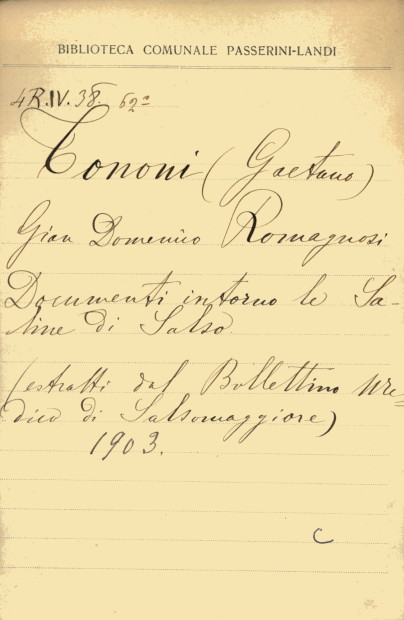 BIBLIOTECA COMUNALE PASSERINI-LANDI
4R.IV.38. 62a
Tononi (Gaetano)
Gian Domenico Romagnosi
Documenti intorno le Sa-
line di Salso
(estratti dal Bollettino Me-
dico di Salsomaggiore)
1903.
C